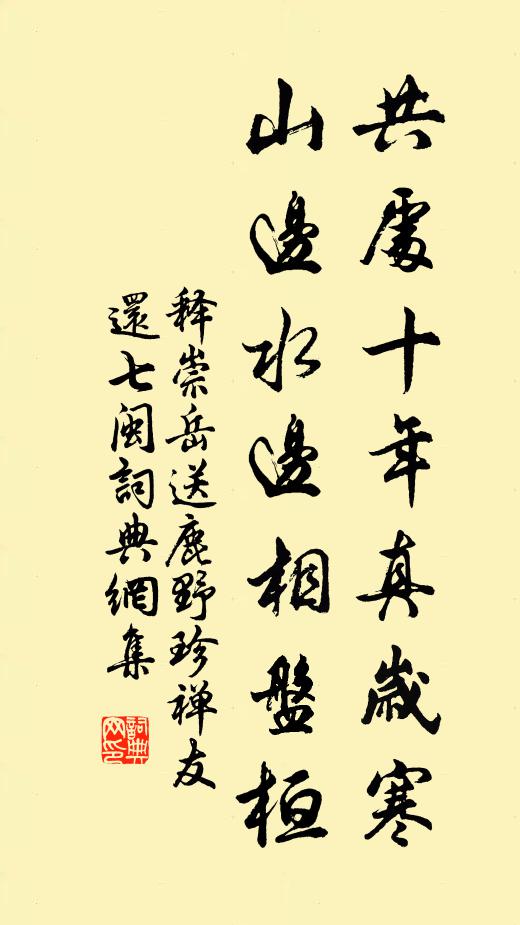 共處十年真歲寒
山邊水邊相盤桓
释崇岳送鹿野珍禅友
還七闽詞典網集
詞典
网印